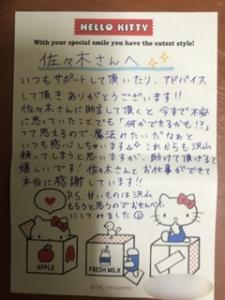 HELLO KITTY
With your special smile you have the cutest style!
佐々木さんへ
いつもサポートして頂いたり、アドバイス
して頂きありがとうございます!!
佐々木さんに助言して頂くと今まで不安
に思っていたことでも「何かできるかも!?」
って思えるので魔法みたいだなぁと
いつも感心しちゃいます これからも沢山
頼ってしまうと思いますが、助けて頂けると
嬉しいです! 佐々木さんとお仕事ができて
本当に感謝しています!!
P.S. 甘いものは沢山
もらうと思うのでおせんべい
にしてみました
APPLE
FRESH MILK